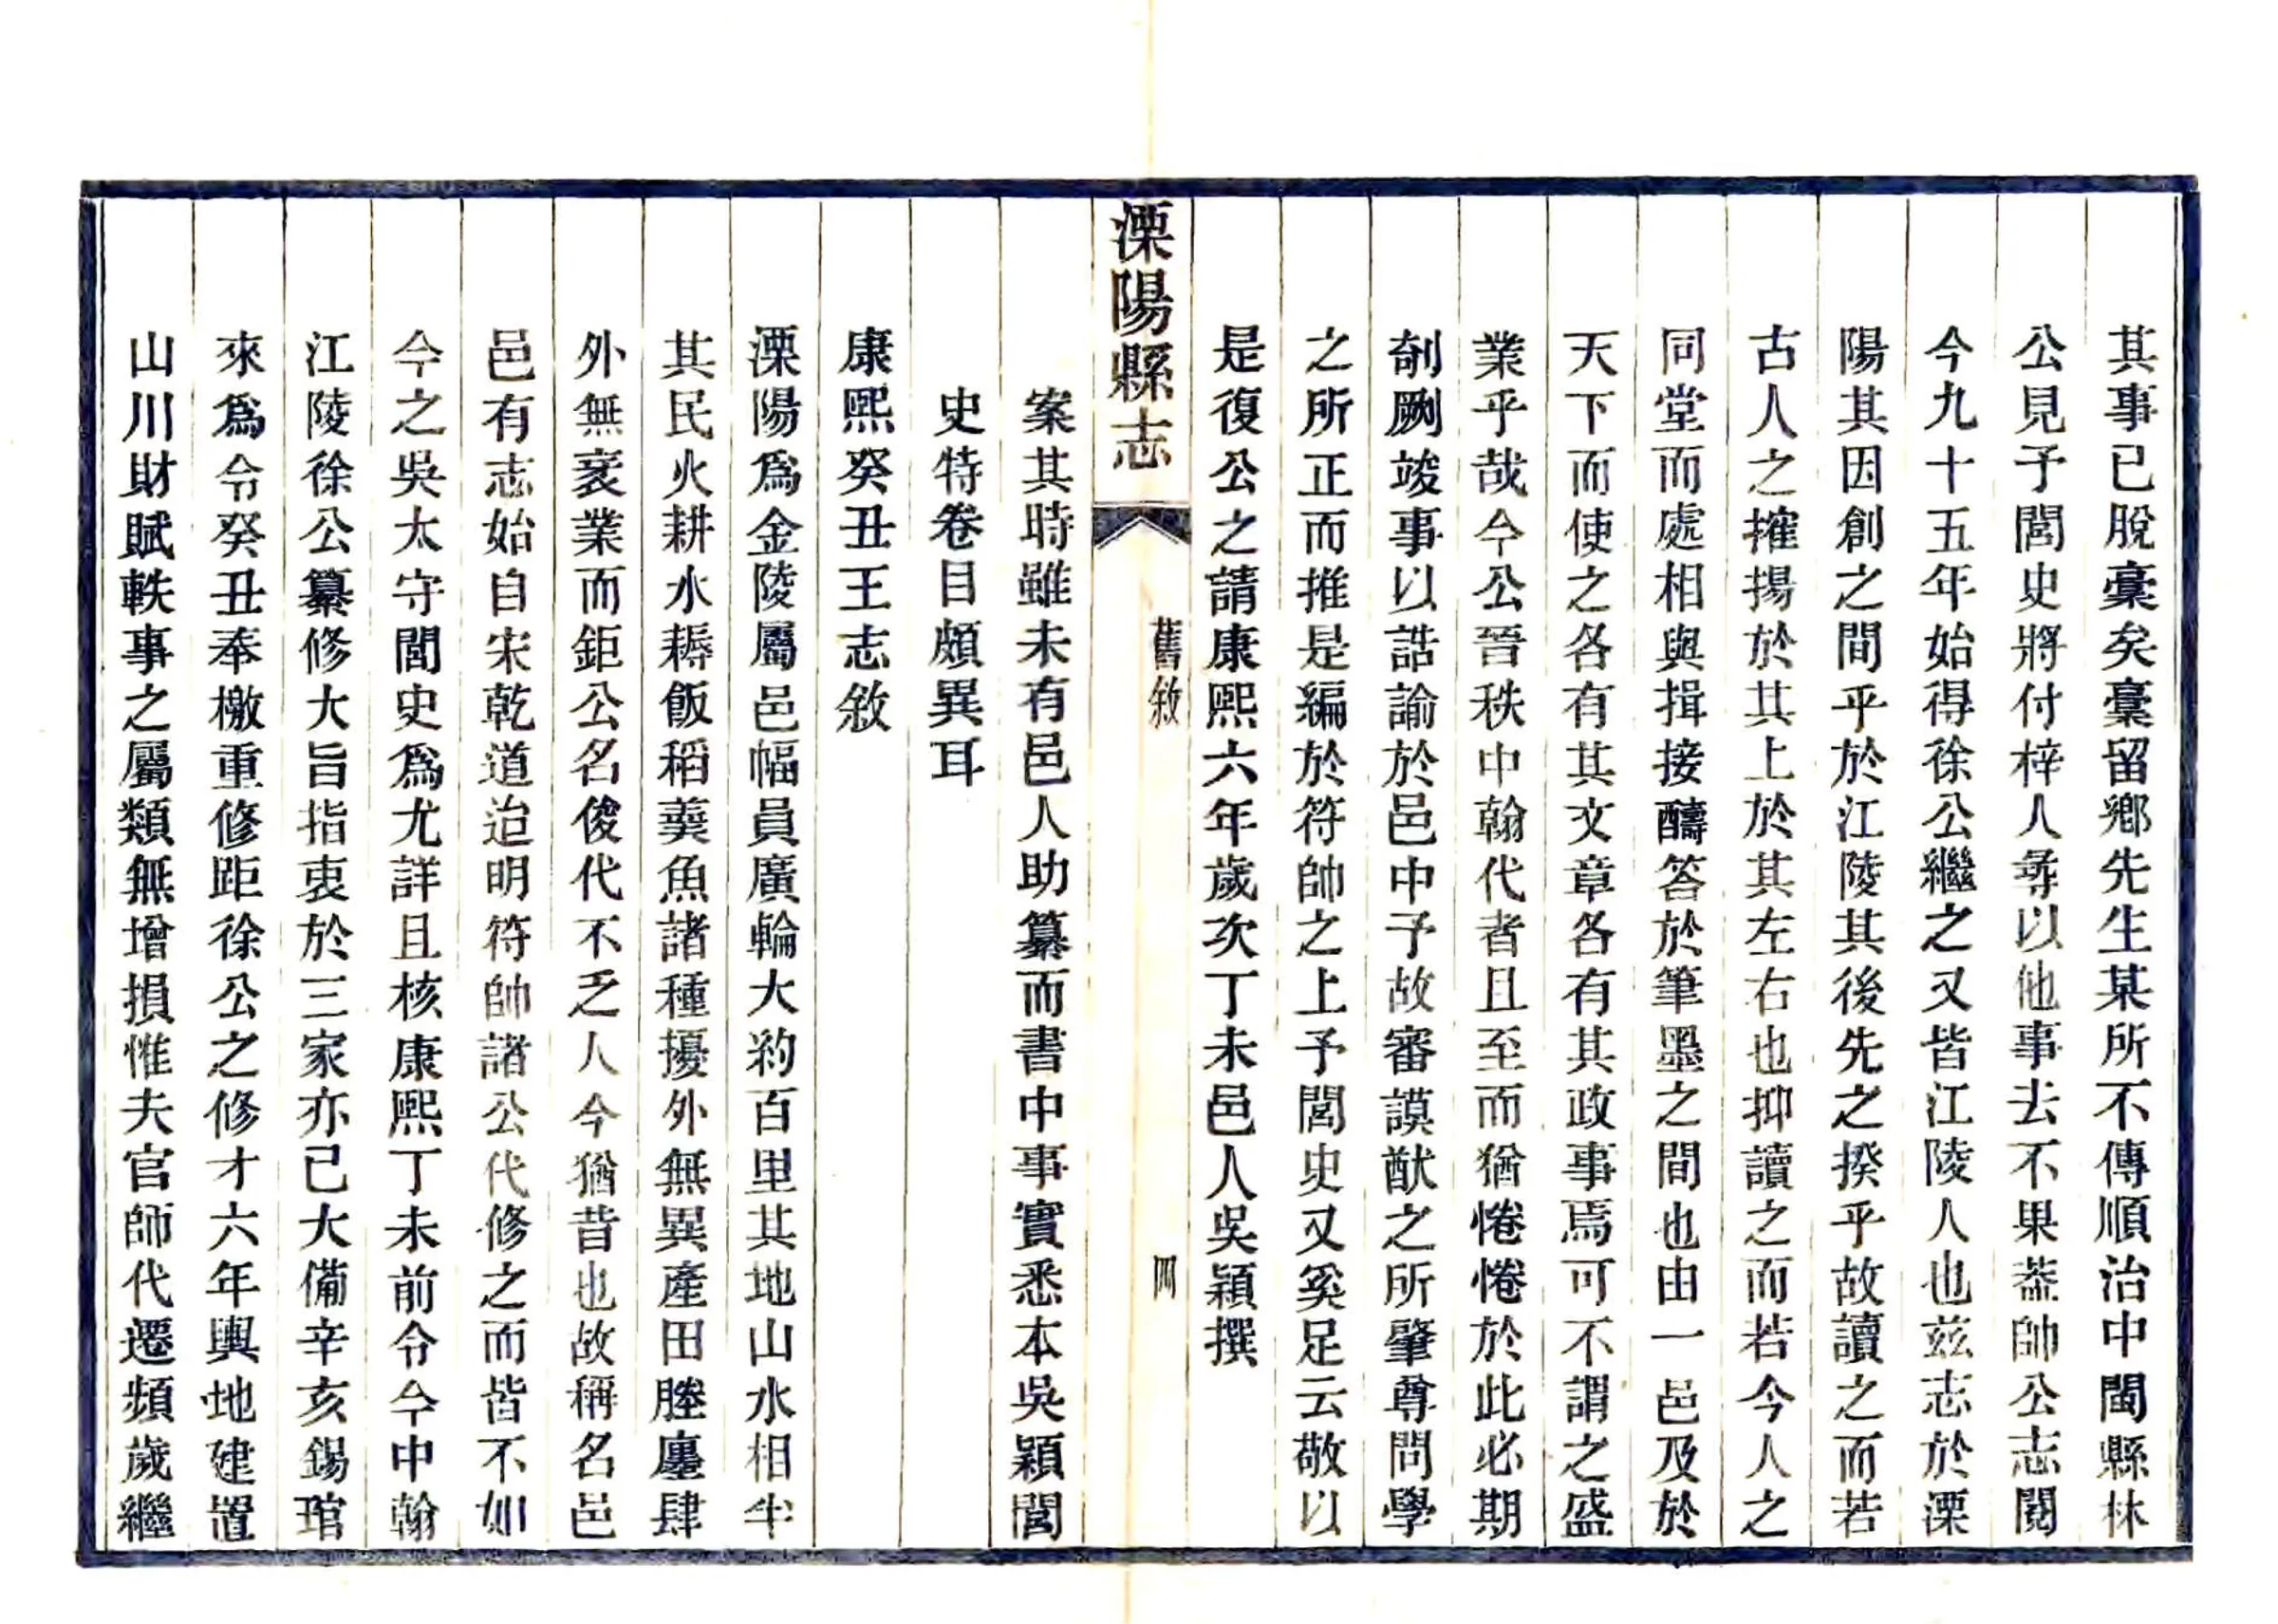 其事已脫稾矣稾留鄉先生某所不傳順治中閩縣林
公見予閭史將付梓人尋以他事去不果葢帥公志閱
今九十五年始得徐公繼之又皆江陵人也茲志於溧
陽其因創之間乎於江陵其後先之揆乎故讀之而若
古人之搉揚於其上於其左右也抑讀之而若今人之
同堂而處相與揖接醻答於筆墨之間也由一邑及於
天下而使之各有其文章各有其政事焉可不謂之盛
業乎哉今公晉秩中翰代者且至而猶惓惓於此必期
剞劂竣事以誥諭於邑中予故審謨猷之所肇尊問學
之所正而推是編於符帥之上予閭史又奚足云敬以
是復公之請康熙六年歲次丁未邑人吳穎撰
溧陽縣志
舊敘
四
案其時雖未有邑人助纂而書中事實悉本吳穎閭
史特卷目頗異耳
康熙癸丑王志敘
溧陽爲金陵屬邑幅員廣輪大約百里其地山水相半
其民火耕水耨飯稻羹魚諸種擾外無異產田塍廛肆
外無袤業而鉅公名俊代不乏人今猶昔也故稱名邑
邑有志始自宋乾道迨明符帥諸公代修之而皆不如
今之吳太守閭史爲尤詳且核康熙丁未前令今中翰
江陵徐公纂修大旨指衷於三家亦已大備辛亥錫琯
來爲令癸丑奉檄重修距徐公之修才六年輿地建置
山川財賦軼事之屬類無增損惟夫官師代遷頻歲繼